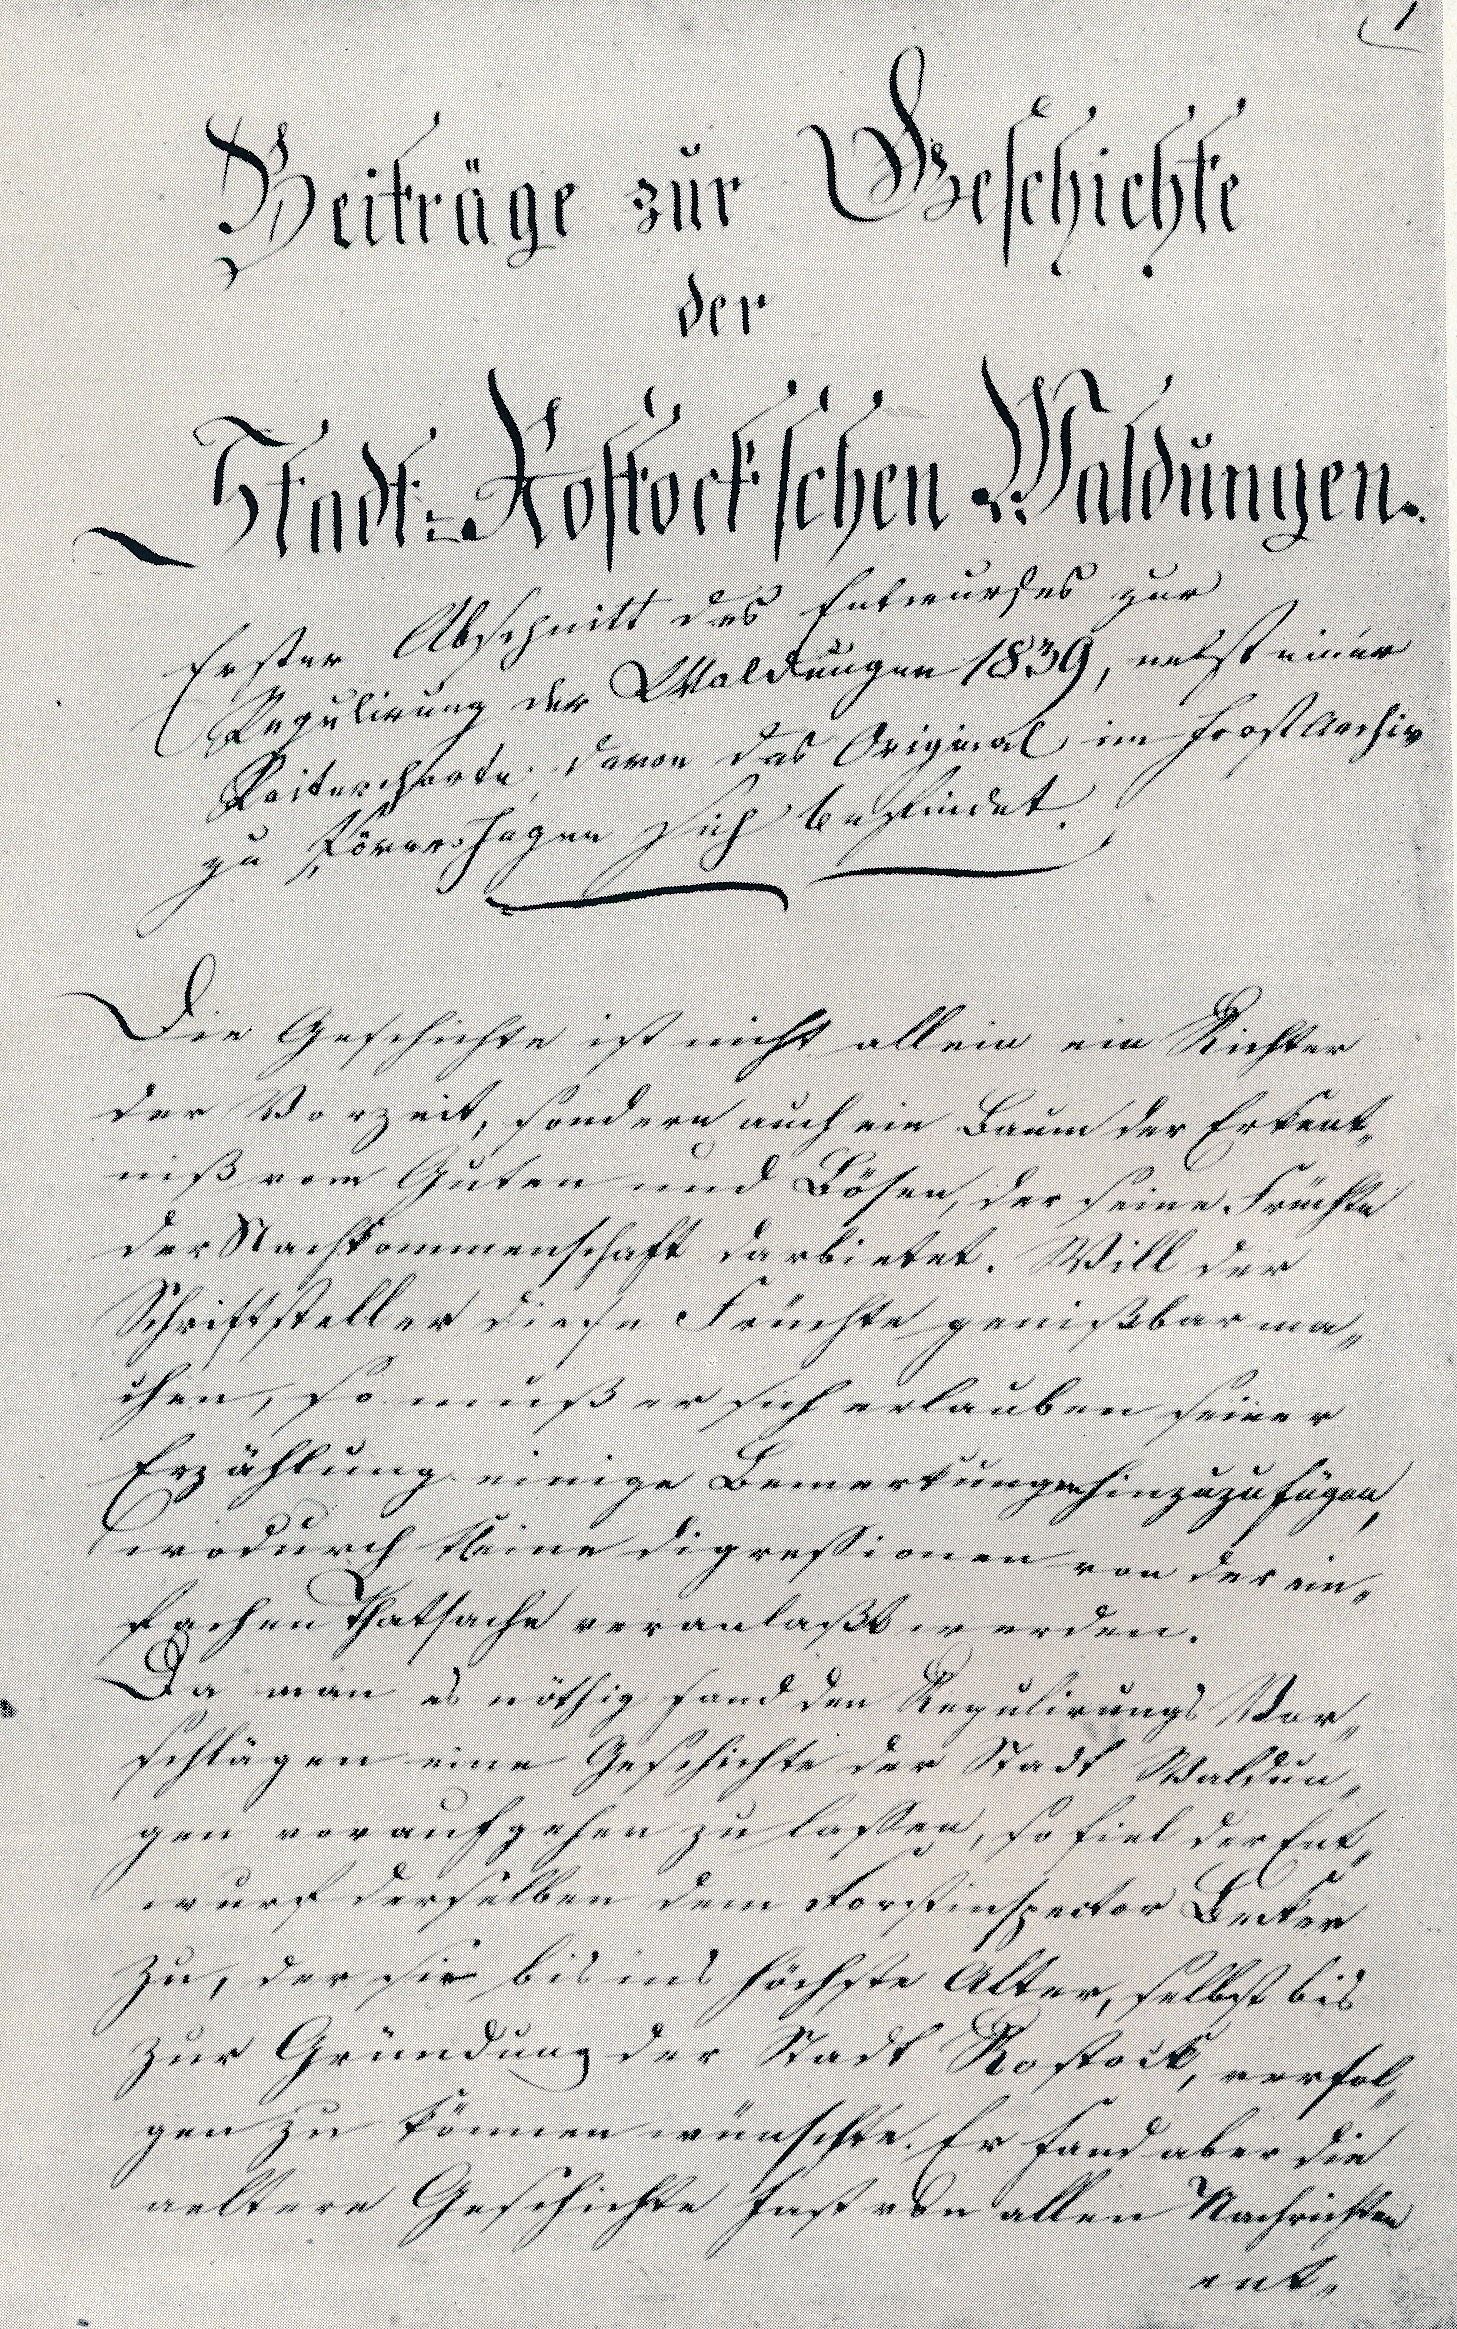 1
Beiträge zur Geschichte
der
Stadt-Rostock'schen Waldungen.
Erster Abschnitt des Entwurfes zur
Regulirung der Waldungen 1839, nebst einer
Reitercharte, davon das Original im Forst Archiv
zu Rövershagen sich befindet.
Die Geschichte ist nicht allein ein Richter
der Vorzeit, sondern auch ein Baum der Erkent„
niß vom Guten und Bösen, der seine Früchte
der Nachkommenschaft darbietet. Will der
Schriftsteller diese Früchte genißbar ma„
chen, so muß er sich erlauben seiner
Erzählung einige Bemerkungen hinzuzufügen,
wodurch kleine digressionen von der ein„
fachen Thatsache veranlaßt werden.
Da man es nöthig fand den Regulirungs Vor„
schlägen eine Geschichte der Stadt Waldun„
gen voraufgehen zu lassen, so fiel der Ent„
wurf derselben dem Forstinspector Becker
zu, der sie bis ins höchste Alter, selbst bis
zur Gründung der Stadt Rostock, verfol„
gen zu können wünschte. Er fand aber die
aeltere Geschichte fast von allen Nachrichten
ent„